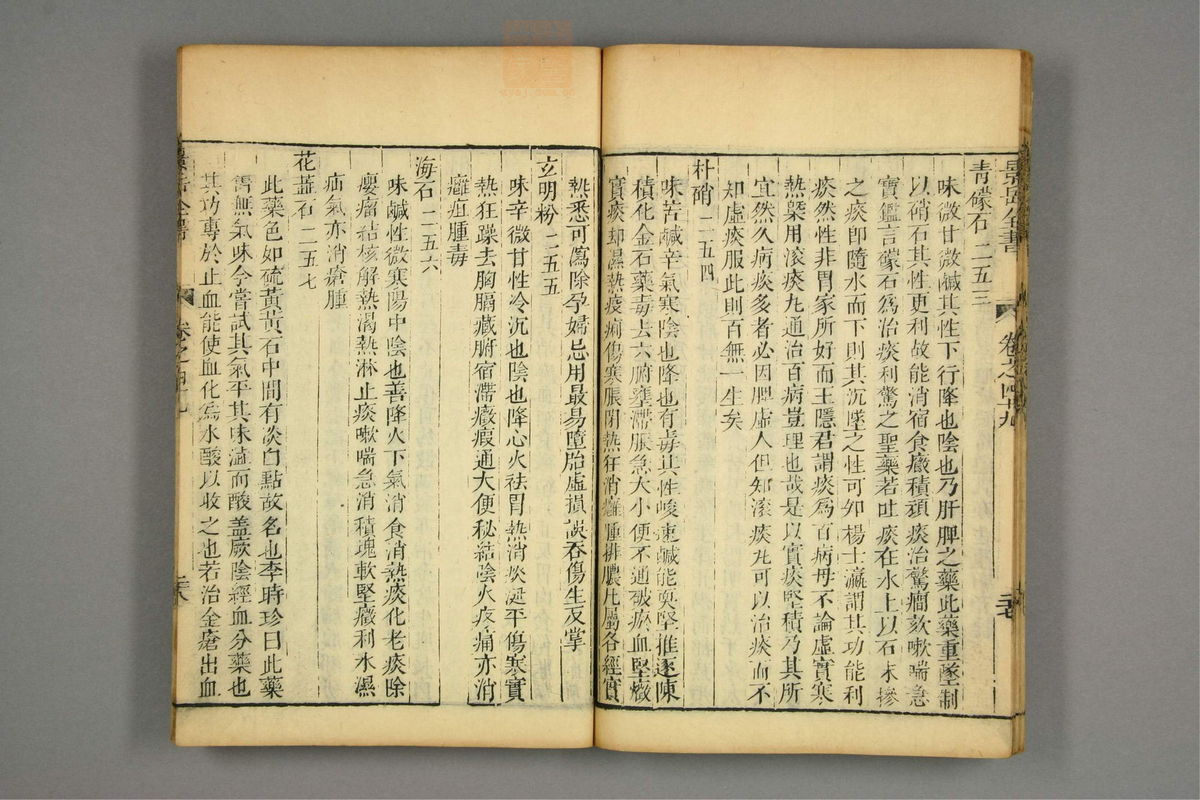 景岳全書 卷之四十九
青礞石二五三
味微甘微鹹其性下行降也陰也乃肝脾之藥此藥重墜制
以硝石其性更利故能消宿食癥積頑痰治驚癇欬嗽喘急
寶鑑言礞石爲治痰利驚之聖藥若吐痰在水上以石末摻
之痰即隨水而下則其沉墜之性可知楊士瀛謂其功能利
痰然性非胃家所好而王隱君謂痰爲百病母不論虛實寒
熱槩用滾痰丸通治百病豈理也哉是以實痰堅積乃其所
宜然久病痰多者必因脾虛人但知滾痰丸可以治痰而不
知虛痰服此則百無一生矣
朴硝二五四
味苦鹹辛氣寒陰也降也有毒其性峻速鹹能耎堅推逐陳
積化金石藥毒去六腑壅滯脹急大小便不通破瘀血堅癥
實痰却濕熱疫痢傷寒脹閉熱狂消癰腫排膿凡屬各經實
熱悉可瀉除孕婦忌用最易墮胎虛損誤吞傷生反掌
玄明粉二五五
味辛微甘性冷沉也陰也降心火祛胃熱消痰涎平傷寒實
熱狂躁去胸膈臟腑宿滯癥瘕通大便秘結陰火疼痛亦消
癰疽腫毒
海石二五六
味鹹性微寒陽中陰也善降火下氣消食消熱痰化老痰除
癭瘤結核解熱渴熱淋止痰嗽喘急消積塊軟堅癥利水濕
疝氣亦消瘡腫
花蕋石二五七
此藥色如硫黃黃石中間有淡白點故名也李時珍曰此藥
舊無氣味今嘗試其氣平其味澁而酸蓋厥陰經血分藥也
其功專於止血能使血化爲水酸以收之也若治金瘡出血
景岳全書 卷之四十九